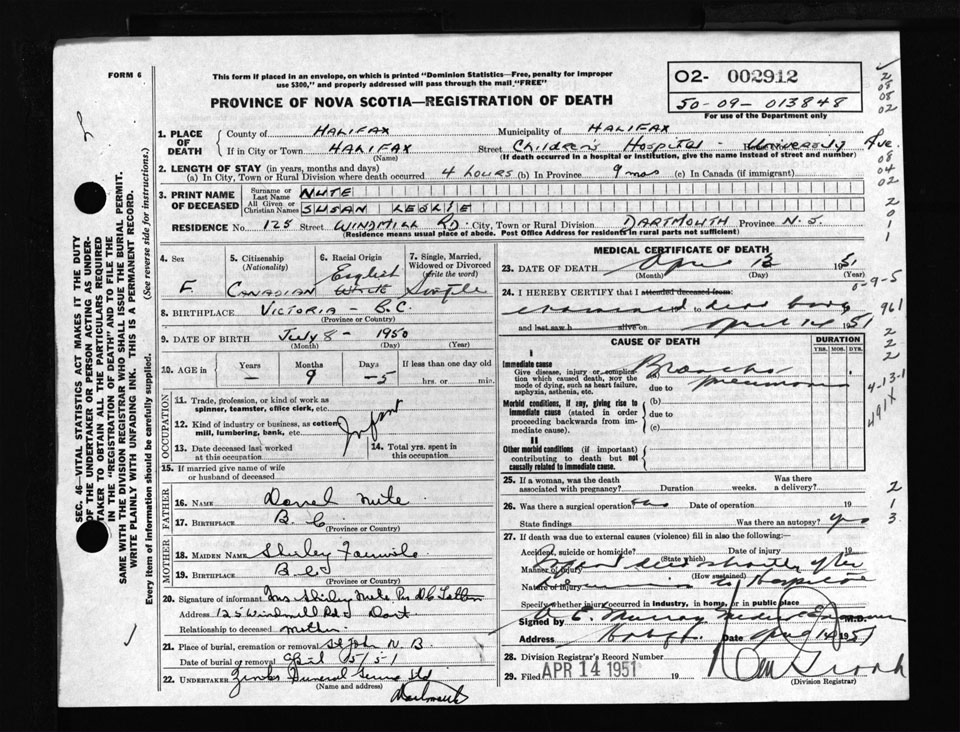 FORM 6
This form if placed in an envelope, on which is printed "Dominion Statistics—Free, penalty for improper
use $300," and properly addressed will pass through the mail "FREE"
PROVINCE OF NOVA SCOTIA—REGISTRATION OF DEATH
02- 002912
50-09-013848
For use of the Department only
1. PLACE OF DEATH
County of HALIFAX Municipality of HALIFAX
If in City or Town HALIFAX Street Children's Hospital - University Ave.
(Name) (If death occurred in a hospital or institution, give the name instead of street and number)
2. LENGTH OF STAY (in years, months and days)
(a) In City, Town or Rural Division where death occurred 4 hours (b) In Province 9 mos (c) In Canada (if immigrant)
3. PRINT NAME OF DECEASED
Surname or Last Name NUTE
All Given or Christian Names SUSAN LESLIE
RESIDENCE No. 125 Street WINDMILL RD. City, Town or Rural Division DARTMOUTH Province N.S.
(Residence means usual place of abode. Post Office Address for residents in rural parts not sufficient)
4. Sex F.
5. Citizenship (Nationality) CANADIAN
6. Racial Origin English WHITE
7. Single, Married, Widowed or Divorced (write the word) Single
8. BIRTHPLACE VICTORIA - B.C.
(Province or Country)
9. DATE OF BIRTH July 8 - 1950
(Month) (Day) (Year)
10. AGE in Years — Months 9 Days -5 If less than one day old
hrs. or min.
OCCUPATION
11. Trade, profession, or kind of work as
spinner, teamster, office clerk, etc.
12. Kind of industry or business, as cotten
mill, lumbering, bank, etc. Infant
13. Date deceased last worked
at this occupation
14. Total yrs. spent in
this occupation
15. If married give name of wife
or husband of deceased
FATHER
16. NAME
17. BIRTHPLACE B.C.
(Province or Country)
MOTHER
18. MAIDEN NAME Shirley
19. BIRTHPLACE B.C.
(Province or Country)
20. Signature of informant Mrs Shirley
Address 125 Windmill Rd Dart
Relationship to deceased mother
21. Place of burial, cremation or removal St John N.B.
Date of burial or removal April 15/51
22. UNDERTAKER Funeral Ltd
(Name and address)
Dartmouth
MEDICAL CERTIFICATE OF DEATH
23. DATE OF DEATH April 13 1951
(Month) (Day) (Year)
24. I HEREBY CERTIFY that I attended deceased from:
examined dead body
and last saw h alive on April 14 1951
CAUSE OF DEATH
DURATION
YRS. MOS. DYS.
I
Immediate cause
Give disease, injury or complication
which caused death, NOT the
mode of dying, such as heart failure,
asphyxia, asthenia, etc.
(a) Broncho
due to pneumonia
Morbid conditions, if any, giving rise to
immediate cause (stated in order
proceeding backwards from immediate
cause).
(b)
due to
(c)
II
Other morbid conditions (if important)
contributing to death but not
causally related to immediate cause.
25. If a woman, was the death
associated with pregnancy? Duration weeks. Was there
a delivery?
26. Was there a surgical operation? no Date of operation 19
State findings Was there an autopsy? yes
27. If death was due to external causes (violence) fill in also the following:
Accident, suicide or homicide? Date of injury 19
(State which)
Manner of injury died shortly after
(How sustained)
Nature of injury to hospital
Specify whether injury occurred in industry, in home, or in public place
Signed by E. Murray M.D.
Address Date April 14 1951
28. Division Registrar's Record Number
29. Filed APR 14 1951 19
(Division Registrar)
SEC. 46—VITAL STATISTICS ACT MAKES IT THE DUTY
OF THE UNDERTAKER OR PERSON ACTING AS UNDERTAKER
TO OBTAIN ALL THE PARTICULARS REQUIRED
IN THE "REGISTRATION OF DEATH" AND TO FILE THE
SAME WITH THE DIVISION REGISTRAR WHO SHALL ISSUE THE BURIAL PERMIT.
WRITE PLAINLY WITH UNFADING INK. THIS IS A PERMANENT RECORD.
Every item of information should be carefully supplied. (See reverse side for instructions.)
2
08
08
02
08
04
02
2
0
1
1
0-9-5
961
2
2
2
4-13-1
491X
2
1
3